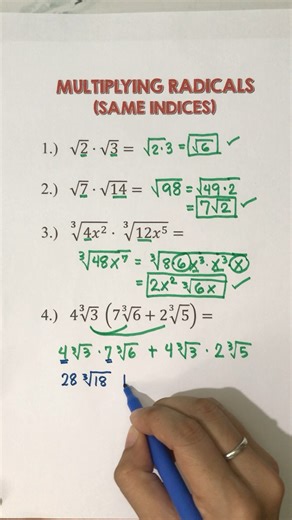 MULTIPLYING RADICALS
(SAME INDICES)
1.) √2 · √3 = √2·3 = √6 ✓
2.) √7 · √14 = √98 = √49·2
= 7√2 ✓
3.) ∛4x² · ∛12x⁵ =
∛48x⁷ = ∛8·6 x³·x³·x
= 2x² ∛6x ✓
4.) 4∛3 (7∛6 + 2∛5) =
4∛3 · 7∛6 + 4∛3 · 2∛5
28 ∛18